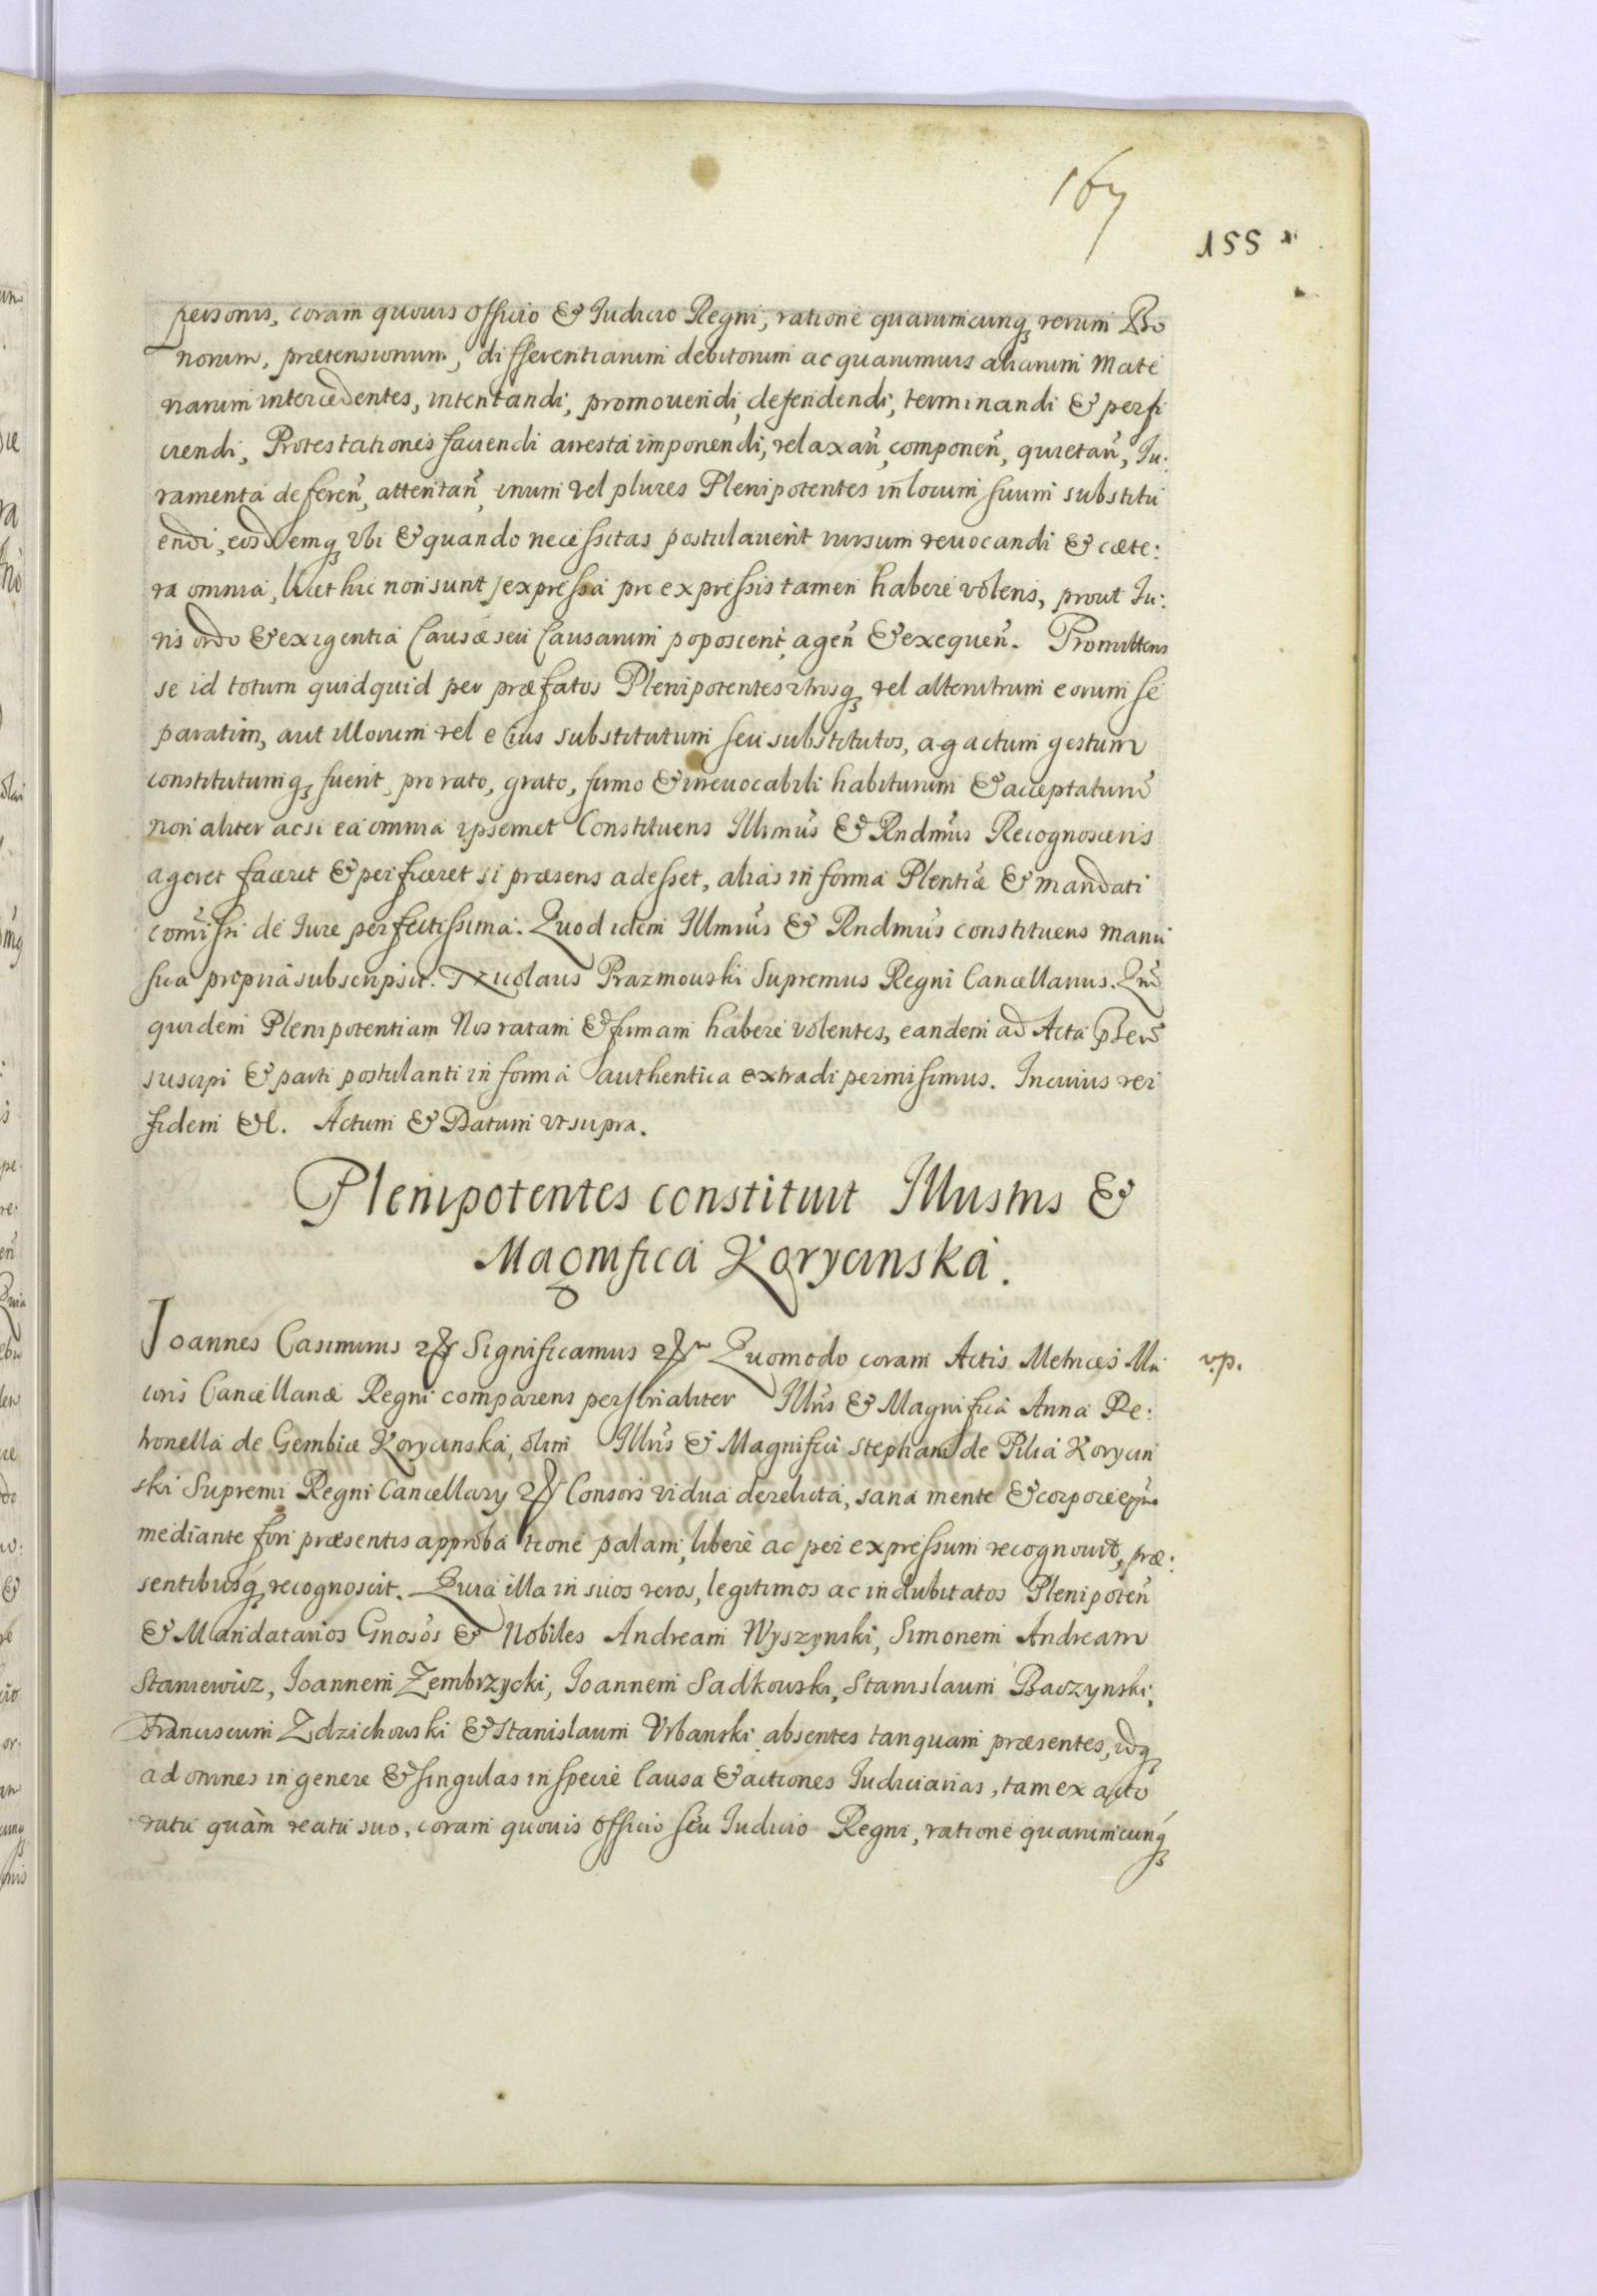 167
155
personis, coram quouis Officio & Iudicio Regni, ratione quarumcunq, rerum Bo
norum, prætensionum, differentiarum debitorum ac quarumuis aliarum mate
riarum intercedentes, intentandi, promouendi, defendendi, terminandi & perfi
ciendi, Protestationes faciendi arresta imponendi, relaxan̄, componen̄, quietan̄, Iu:
ramenta deferen̄, attentan̄, unum vel plures Plenipotentes in locum suum substitu
endi, eosdemq, vbi & quando necessitas postulauerit rursum reuocandi & cæte:
ra omnia, licet hic non sunt expressa pro expressis tamen habere volens, prout Iu:
ris ordo & exigentia Causæ seu Causarum poposcerit, agen̄ & exequen̄. Promittens
se id totum quidquid per præfatos Plenipotentes vtrosq, vel alterutrum eorum se
paratim, aut illorum vel eius substitutum seu substitutos, actum gestum
constitutumq, fuerit, pro rato, grato, firmo & irreuocabili habiturum & acceptaturū
non aliter acsi ea omnia ipsemet Constituens Illimus & Rndmus Recognoscens
ageret faceret & perficeret si præsens adesset, alias in forma Plentiæ & mandati
com̄issi de Iure perfectissima. Quod idem Illmus & Rndmus constituens manu
sua propria subscripsit. Nicolaus Prazmouski Supremus Regni Cancellarius. Qm̄
quidem Plenipotentiam Nos ratam & firmam habere volentes, eandem ad Acta
suscipi & parti postulanti in forma authentica extradi permisimus. In cuius rei
fidem &c. Actum & Datum vt supra.
Plenipotentes constituit Illustris &
Magnifica Korycinska.
Ioannes Casimirus Significamus Quomodo coram Actis Metrices Mi v.p.
noris Cancellariæ Regni comparens personaliter Illris & Magnifica Anna Pe:
tronella de Gembice Korycinska, olim Illris & Magnifici Stephani de Pilca Korycin
ski Supremi Regni Cancellarij Consors vidua derelicta, sana mente & corpore
mediante fori præsentis approbatione palam, libere ac per expressum recognouit, præ:
sentibusq, recognoscit. Quia illa in suos veros, legitimos ac indubitatos Plenipoten̄
& Mandatarios Gnosos & Nobiles Andream Wyszynski, Simonem Andream
Staniewicz, Ioannem Zembrzycki, Ioannem Sadkouski, Stanislaum Baczynski,
Franciscum Zdzichowski & Stanislaum Vrbanski absentes tanquam præsentes, idq,
ad omnes in genere & singulas in specie Causa & actiones Iudiciarias, tam ex acto
ratu quàm reatu suo, coram quouis Officio seu Iudicio Regni, ratione quarumcunq,